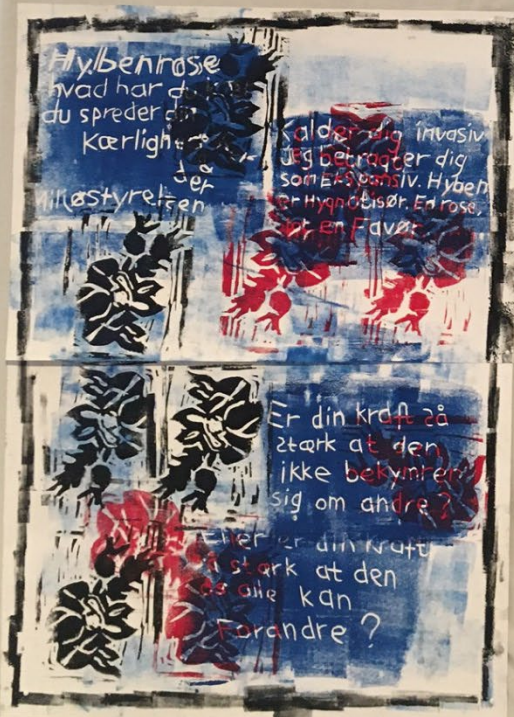 Hybenrose
hvad har d
du spreder din
Kærlighed
og
der
Miljøstyrelsen
Kalder dig invasiv
Jeg betragter dig
som Ekspansiv. Hyben
er Hypnotisør. En rose,
gør en Favør.
Er din kraft så
stærk at den
ikke bekymrer
sig om andre?
Eller er din kraft
så stærk at den
os alle kan
Forandre?